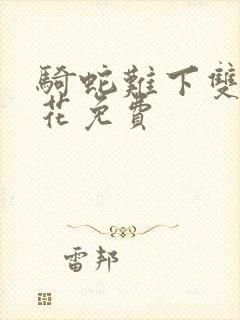 騎蛇難下雙
花免費
雷邦